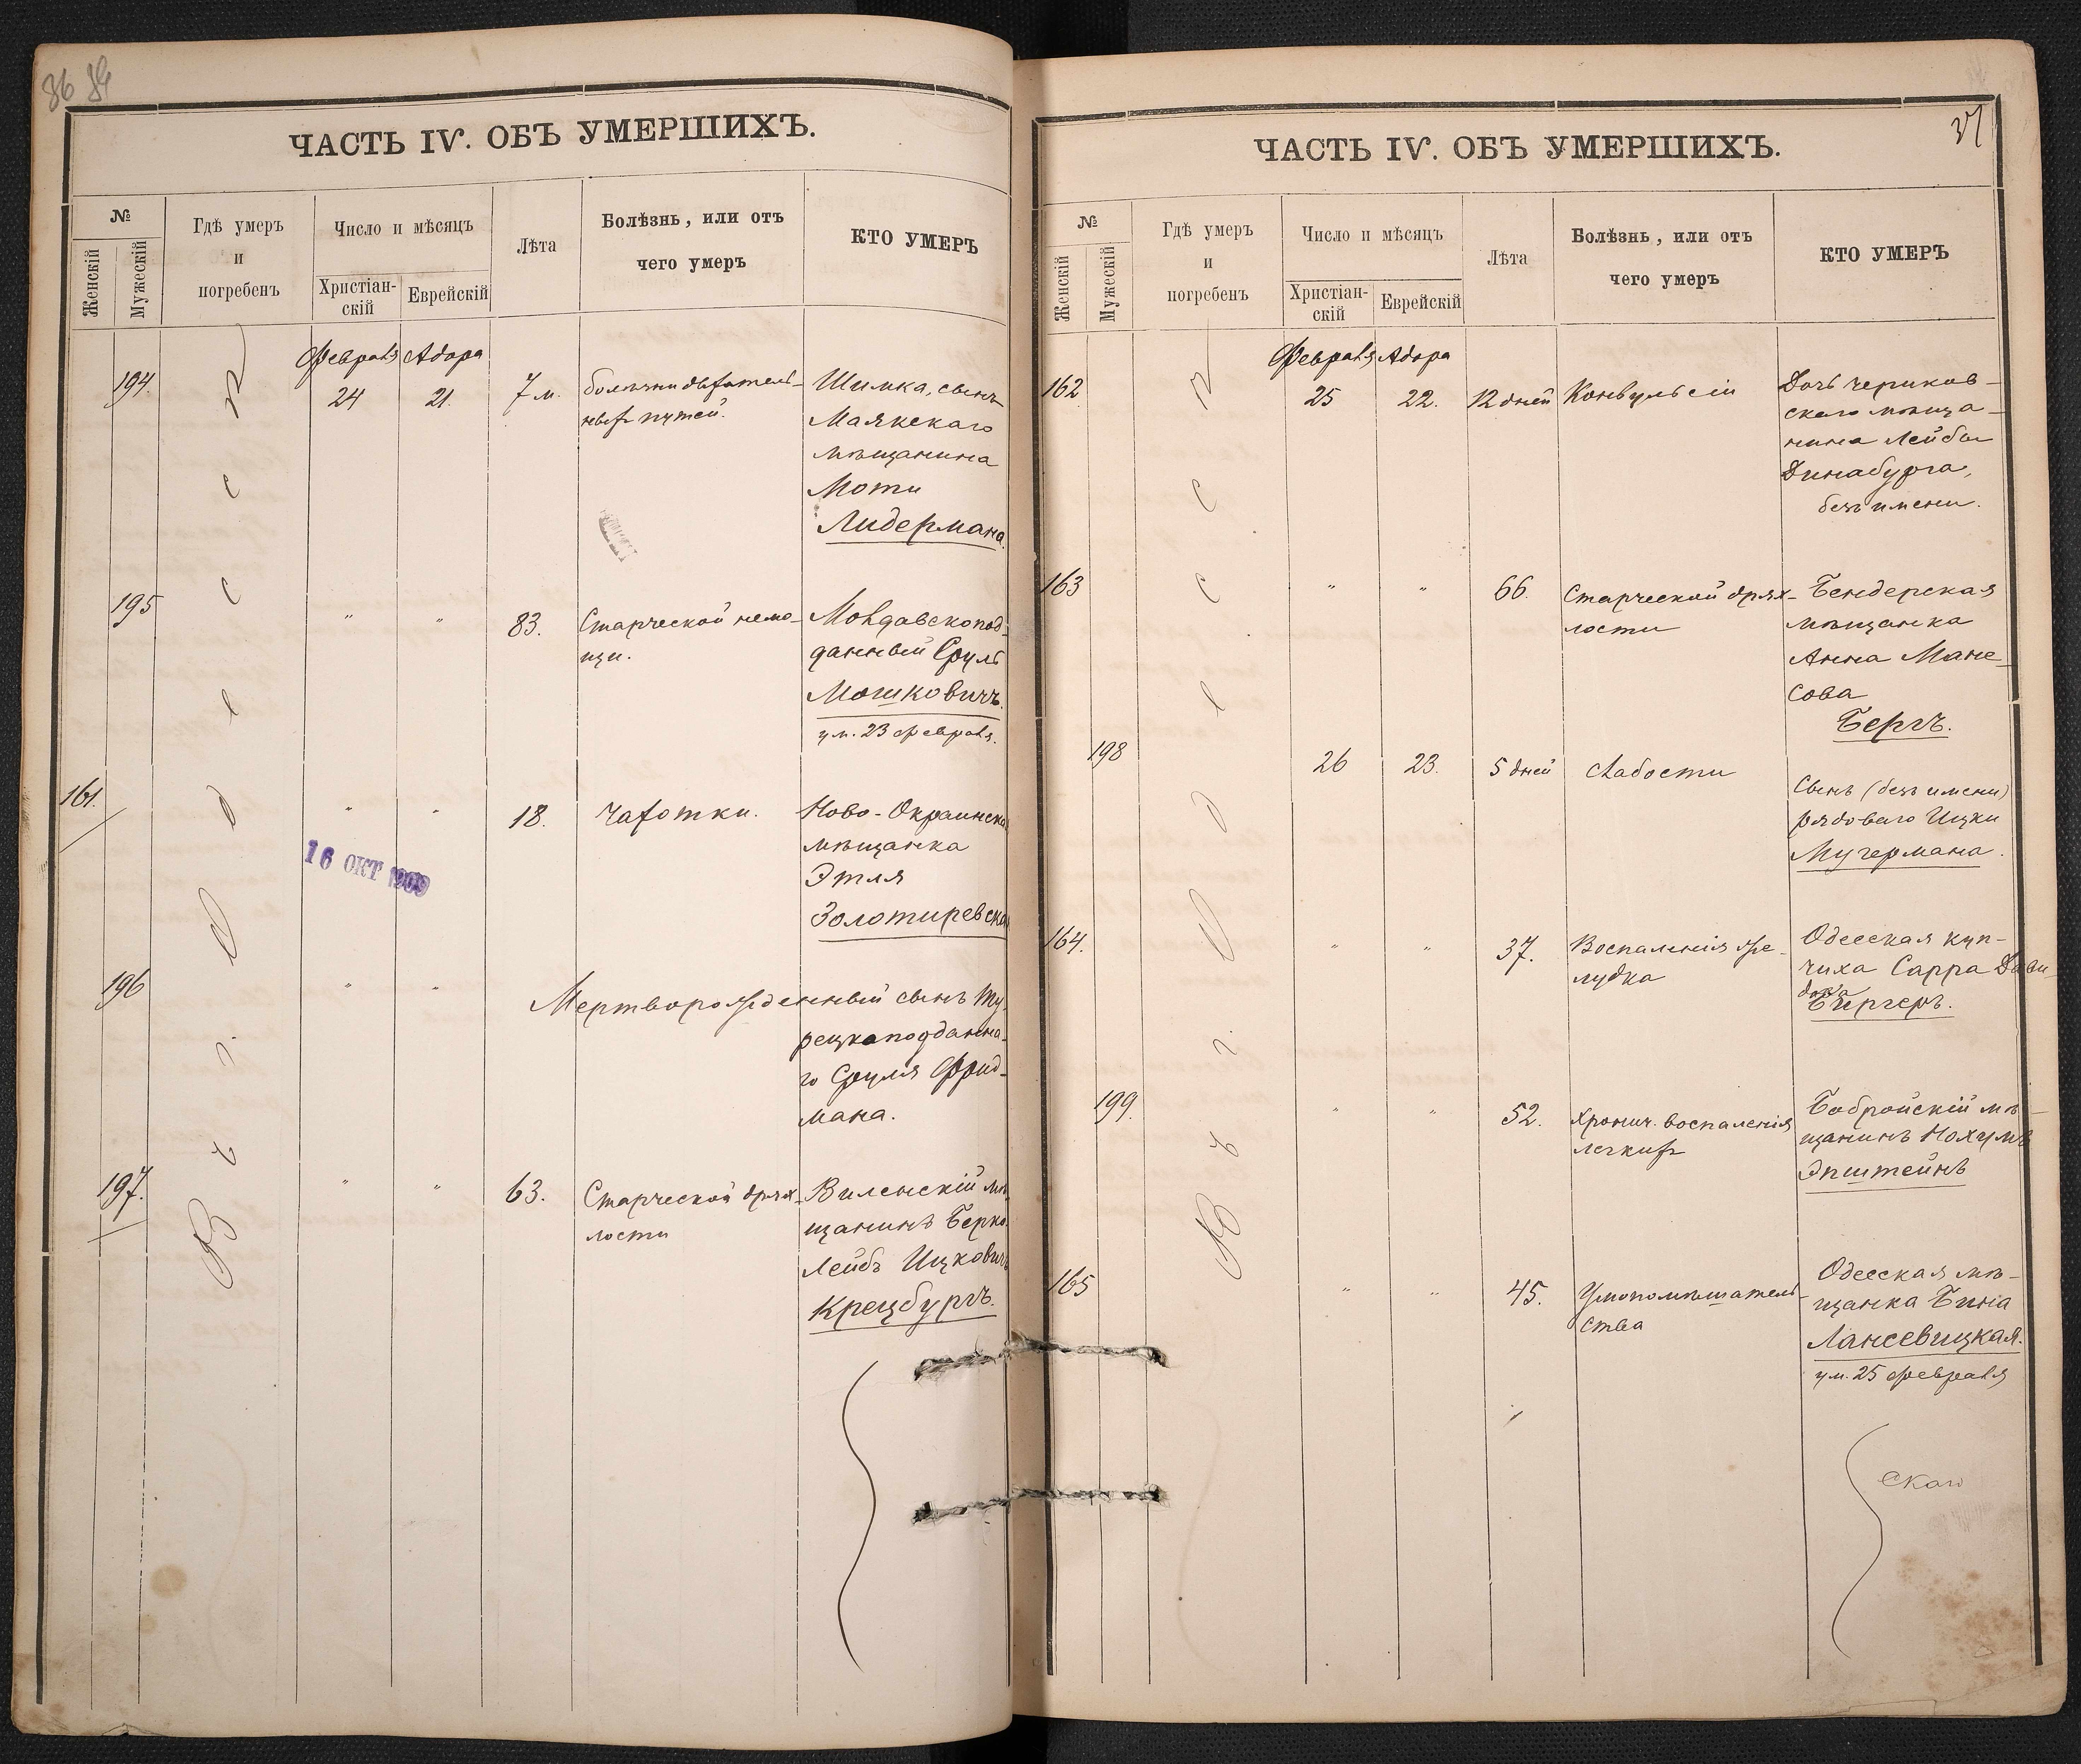 36
ЧАСТЬ IV. ОБЪ УМЕРШИХЪ.
№
Женскій
Мужескій
Гдѣ умеръ
и
погребенъ
Число и мѣсяцъ
Христіан-
скій
Еврейскій
Лѣта
Болѣзнь, или отъ
чего умеръ
КТО УМЕРЪ
Въ г. Одессѣ
Февраля Адара
194. 24 21. 7 м. болѣзни дыхатель-
ныхъ путей.
Шимка, сынъ
Маякскаго
мѣщанина
Моти
Лидермана.
195 " " 83. Старческой немо-
щи.
Молдавскопод-
данный Сруль
Мошковичъ.
ум. 23 февраля.
161. " " 18. Чахотки.
Ново-Окраинска
мѣщанка
Этля
Золотиревская
16 ОКТ 1909
196 " " Мертворожденный сынъ ту-
рецкаподданна-
го Сруля Фрид-
мана.
197. " " 63. Старческой дрях-
лости
Виленскій мѣ-
щанинъ Берко
Лейбъ Ицковичъ
Крецбургъ.
37
ЧАСТЬ IV. ОБЪ УМЕРШИХЪ.
№
Женскій
Мужескій
Гдѣ умеръ
и
погребенъ
Число и мѣсяцъ
Христіан-
скій
Еврейскій
Лѣта
Болѣзнь, или отъ
чего умеръ
КТО УМЕРЪ
Въ г. Одессѣ
Февраля Адара
162 25 22. 12 дней Конвульсіи
Дочь чериков-
скаго мѣща-
нина Лейбы
Динабурга,
безъ имени.
163 " " 66. Старческой дрях-
лости
Бендерская
мѣщанка
Анна Мане-
сова
Бергъ.
198 26 23. 5 дней слабости
Сынъ (безъ имени)
рядоваго Ицки
Мучермана.
164. " " 37. Воспаленія же-
лудка
Одесская куп-
чиха Сарра Дави-
дова
Биргеръ.
199. " " 52. Хронич. воспаленія
легкихъ
Бобройскій мѣ-
щанинъ Нохумъ
Эпштейнъ
165 " " 45. Умопомѣшатель-
ства
Одесская мѣ-
щанка Бина
Лансевицкая.
ум. 25 февраля
скаго